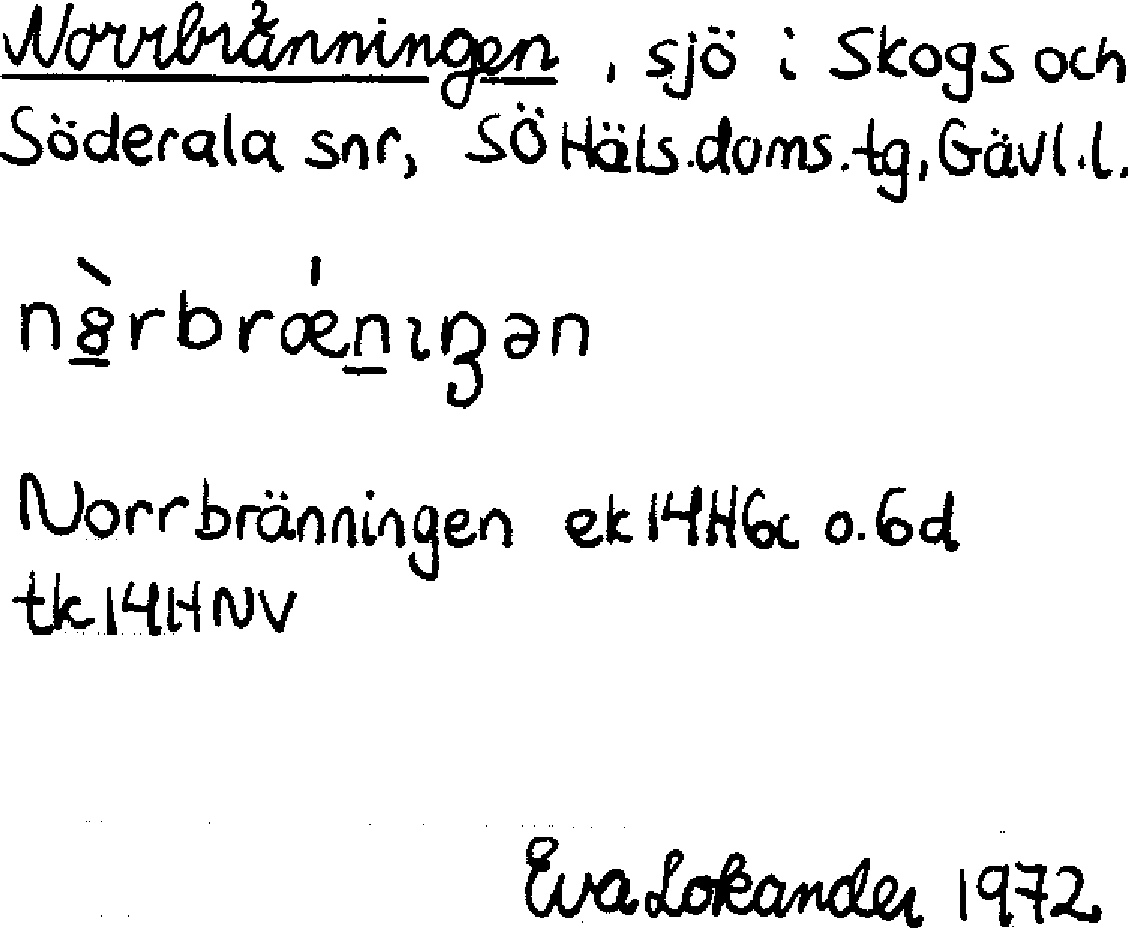 Norrbränningen, sjö i Skogs och
Söderala snr, SÖ Häls.doms.tg, Gävl.l.
n8̀rbrǽnıŋən
Norrbränningen ek 14H6c o. 6d
tk 14H NV
Eva Lokander 1972